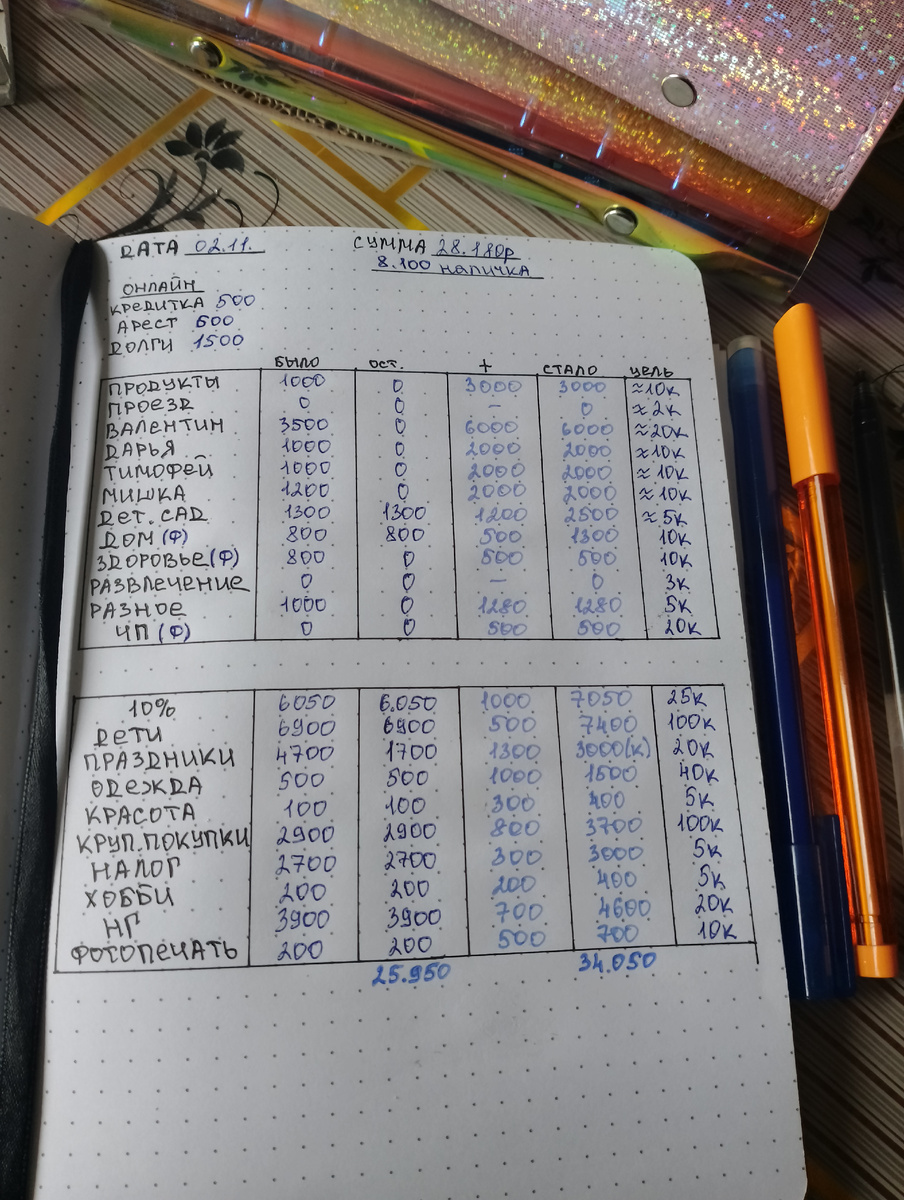 ДАТА 02.11. СУММА 28.180р
8.100 наличка
ОНЛАЙН
КРЕДИТКА 500
АРЕСТ 500
ДОЛГИ 1500
БЫЛО ОСТ. + СТАЛО ЦЕЛЬ
ПРОДУКТЫ 1000 0 3000 3000 ≈10к
ПРОЕЗД 0 0 – 0 ≈2к
ВАЛЕНТИН 3500 0 6000 6000 ≈20к
ДАРЬЯ 1000 0 2000 2000 ≈10к
ТИМОФЕЙ 1000 0 2000 2000 ≈10к
МИШКА 1200 0 2000 2000 ≈10к
ДЕТ. САД 1300 1300 1200 2500 ≈5к
ДОМ (Ф) 800 800 500 1300 10к
ЗДОРОВЬЕ (Ф) 800 0 500 500 10к
РАЗВЛЕЧЕНИЕ 0 0 – 0 3к
РАЗНОЕ 1000 0 1280 1280 5к
ЧП (Ф) 0 0 500 500 20к
10% 6050 6.050 1000 7050 25к
ДЕТИ 6900 6900 500 7400 100к
ПРАЗДНИКИ 4700 1700 1300 3000(к) 20к
ОДЕЖДА 500 500 1000 1500 40к
КРАСОТА 100 100 300 400 5к
КРУП.ПОКУПКИ 2900 2900 800 3700 100к
НАЛОГ 2700 2700 300 3000 5к
ХОББИ 200 200 200 400 5к
НГ 3900 3900 700 4600 20к
ФОТОПЕЧАТЬ 200 200 500 700 10к
25.950 34.050